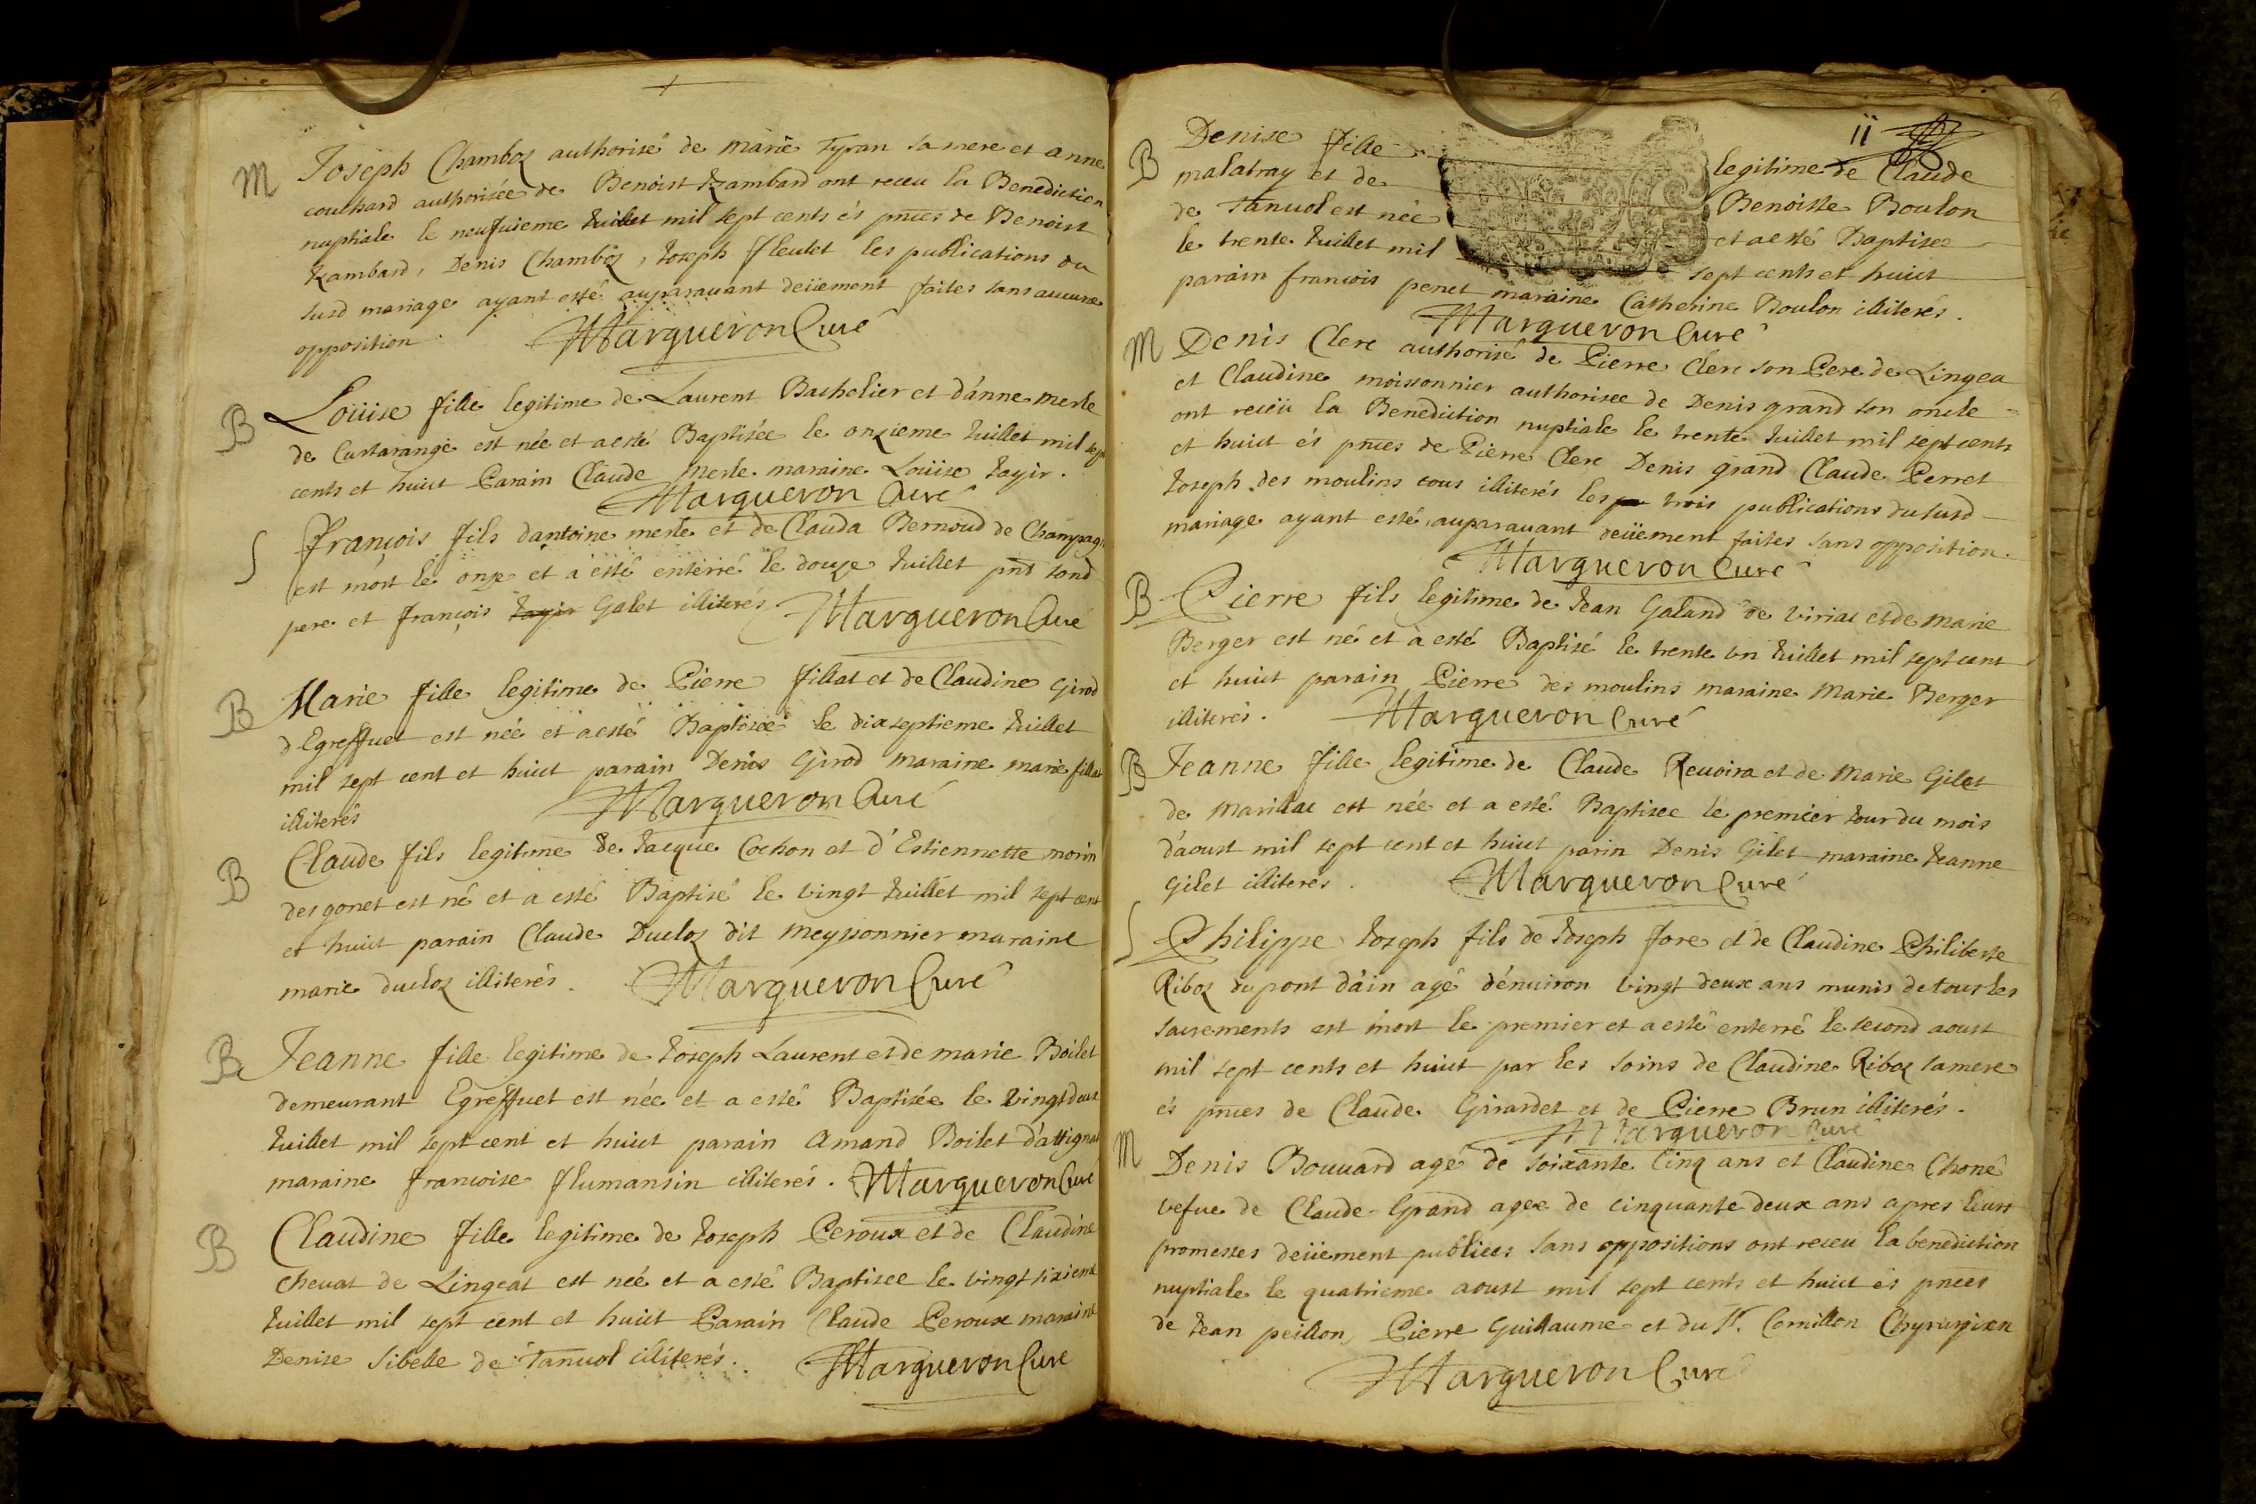 M Joseph Chamboz authorisé de marie Tyran sa mere et anne
couchard authorisée de Benoist Rambard ont receu la Benediction
nuptiale le neufuieme Juillet mil sept cents és pnces de Benoist
Rambard, Denis Chamboz, Joseph fleulet les publications du
susd mariage ayant esté auparauant deüement faites sans aucune
opposition
Margueron Curé
B Loüise fille legitime de Laurent Bachelier et d'anne merle
de Curtarange est née et a esté Baptisée le onzieme Juillet mil sept
cents et huict Parain Claude merle maraine Loüise Jayir.
Margueron Curé
S François fils dantoine merle et de Clauda Bernoud de Champag
est mort le onze et a esté enterré le douze Juillet pnt sond
pere et françois Jayir Galet illiterés Margueron Curé
B Marie fille legitime de Pierre fillat et de Claudine Girod
d Egreffuet est née et a esté Baptisée le dixseptieme Juillet
mil sept cent et huict parain Denis Girod maraine marie fillat
illiterés
Margueron Curé
B Claude fils legitime de Jacque Cochon et d'Estiennette morin
des gonet est né et a esté Baptisé le vingt Juillet mil sept cent
et huict parain Claude Ducloz dit meyssonnier maraine
marie ducloz illiterés. Margueron Curé
B Jeanne fille legitime de Joseph Laurent et de marie Boilet
demeurant Egreffuet est née et a esté Baptisée le vingt deux
Juillet mil sept cent et huict parain amand Boilet d'attignat
maraine francoise flumansin illiterés. Margueron Curé
B Claudine fille legitime de Joseph Peroux et de Claudine
Cheuat de Lingeat est neé et a esté Baptisee le vingt sixieme
Juillet mil sept cent et huict Parain Claude Peroux maraine
Denise Sibelle de Tanuol illiterés. Margueron Curé
ii
B Denise fille legitime de Claude
malatray et de Benoiste Boulon
de Tanuol est née et a esté Baptisee
le trente Juillet mil sept cents et huict
parain francois penet maraine Catherine Boulon illiterés.
Margueron Curé
M Denis Clerc authorisé de Pierre Clerc son Pere de Lingea
et Claudine moissonnier authorisee de Denis grand son oncle
ont receü la Benediction nuptiale le trente Juillet mil sept cents
et huict és pnces de Pierre Clerc Denis grand Claude Perret
Joseph des moulins tous illiterés les trois publications du susd
mariage ayant esté auparauant deüement faites sans opposition.
Margueron Curé
B Pierre fils legitime de Jean Galand de viriat et de marie
Berger est né et a esté Baptisé le trente un Juillet mil sept cent
et huict parain Pierre des moulins maraine Marie Berger
illiterés. Margueron Curé
B Jeanne fille legitime de Claude Reuoira et de Marie Gilet
de Marillac est née et a esté Baptisee le premier Jour du mois
d'aoust mil sept cent et huict parin Denis Gilet maraine Jeanne
Gilet illiteres. Margueron Curé
S Philippe Joseph fils de Joseph fore et de Claudine Philiberte
Riboz du pont d'ain agé d'enuiron vingt deux ans munis de tous les
sacrements est mort le premier et a esté enterré le second aoust
mil sept cents et huict par les soins de Claudine Riboz sa mere
és pnces de Claude Girardet et de Pierre Brun illiterés.
Margueron Curé
M Denis Bouuard agé de soixante Cinq ans et Claudine Choné
vefue de Claude Grand agee de cinquante deux ans apres leurs
promesses deüement publiees sans oppositions ont receu la benediction
nuptiale le quatrieme aoust mil sept cents et huict és pnces
de Jean peillon, Pierre Guillaume et du Sr. Cornillon Chyrurgien
Margueron Curé